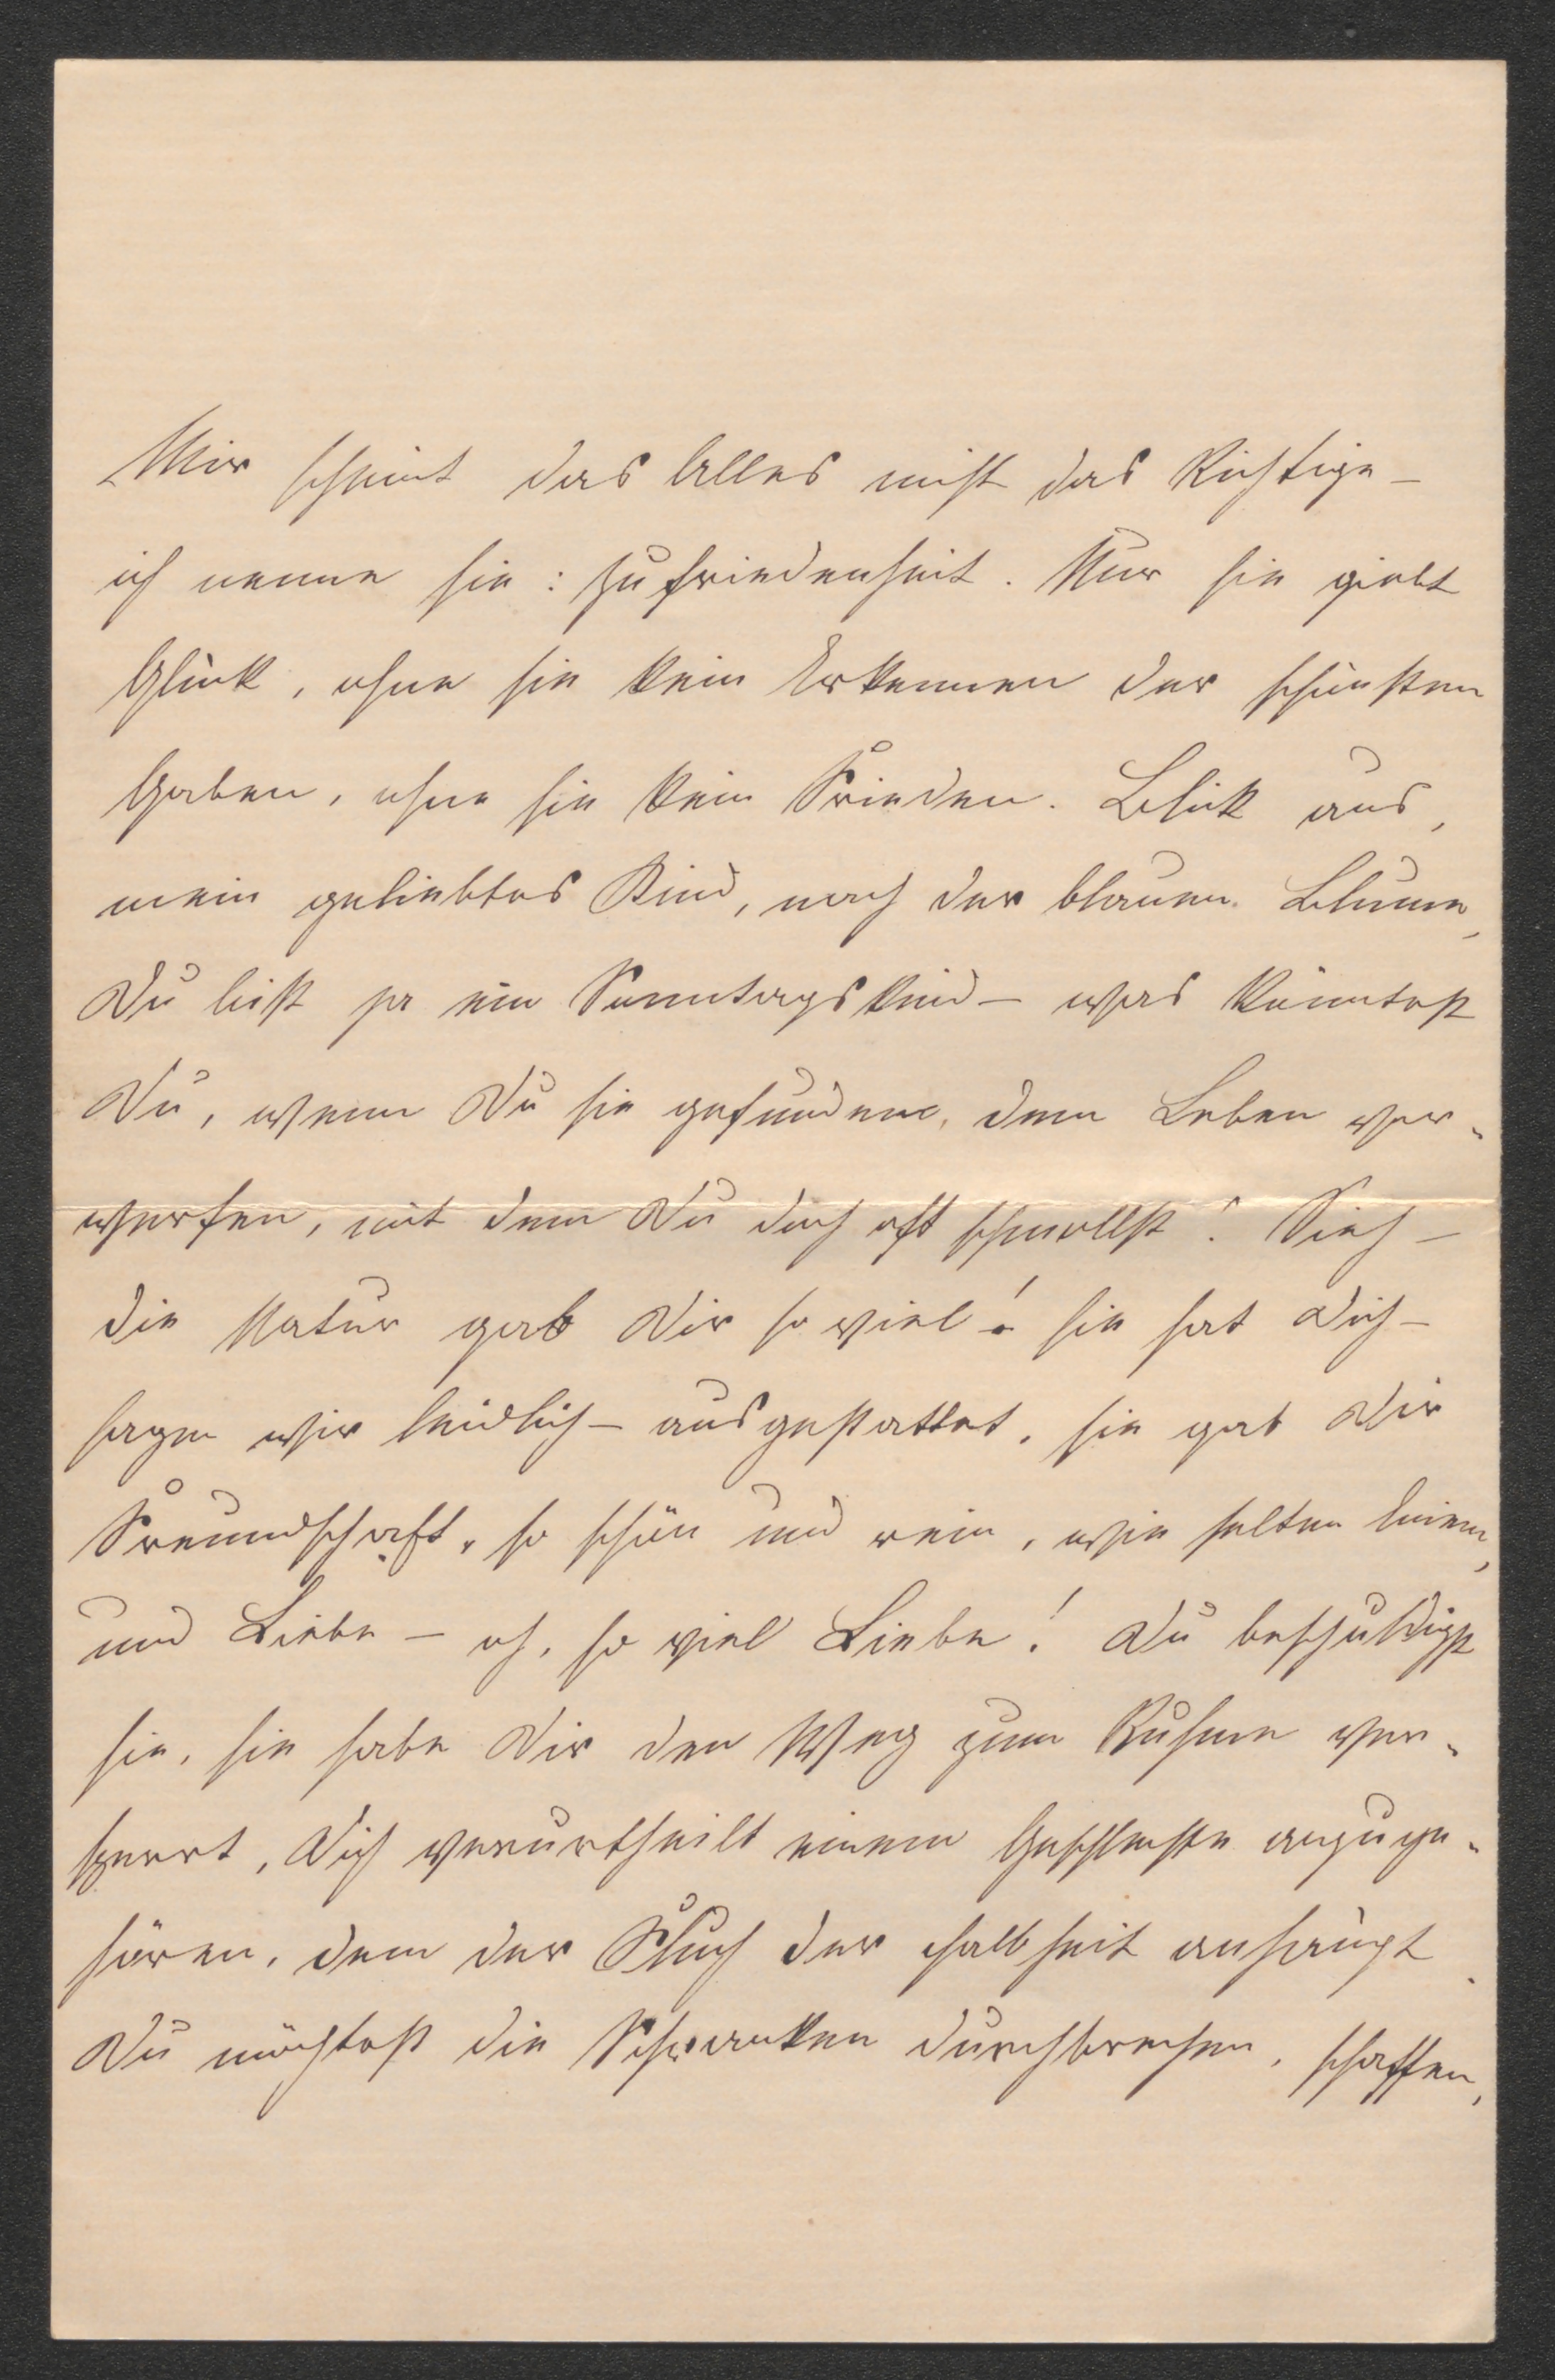 Mir scheint das Alles nicht das Richtige –
ich nenne sie: Zufriedenheit. Nur sie giebt
Glück, ohne sie kein Erkennen der schönsten
Gaben, ohne sie kein Frieden. Blick aus,
mein geliebtes Kind, nach der blauen Blume,
Du bist ja ein Sonntagskind – was könntest
Du, wenn Du sie gefunden, dem Leben vor-
werfen, mit dem Du doch oft schmollst? Sieh –
die Natur gab Dir so viel! sie hat Dich –
sagen wir leidlich – ausgestattet, sie gab Dir
Freundschaft, so schön und rein, wie selten Einem,
und Liebe – oh, so viel Liebe! Du beschuldigst
sie, sie habe Dir den Weg zum Ruhme ver-
sperrt, Dich verurtheilt einem Geschlechte anzuge-
hören, dem der Fluch der Halbheit anhängt.
Du möchtest die Schranken durchbrechen, schaffen,